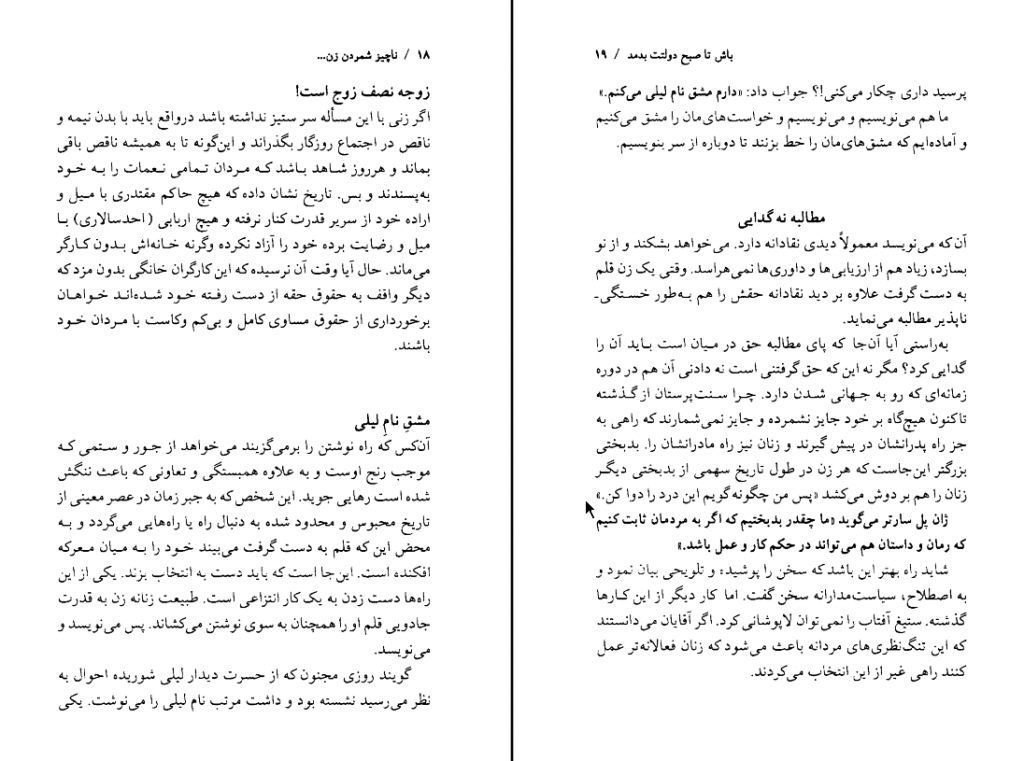 ۱۸ / ناچیز شمردن زن...
زوجه نصف زوج است!
اگر زنی با این مسأله سر ستیز نداشته باشد درواقع باید با بدن نیمه و
ناقص در اجتماع روزگار بگذراند و این‌گونه تا به همیشه ناقص باقی
بماند و هرروز شاهد باشد که مردان تمامی نعمات را به خود
به‌پسندند و بس. تاریخ نشان داده که هیچ حاکم مقتدری با میل و
اراده خود از سریر قدرت کنار نرفته و هیچ اربابی (احدسالاری) با
میل و رضایت برده خود را آزاد نکرده وگرنه خانه‌اش بدون کارگر
می‌ماند. حال آیا وقت آن نرسیده که این کارگران خانگی بدون مزد که
دیگر واقف به حقوق حقه از دست رفته خود شده‌اند خواهان
برخورداری از حقوق مساوی کامل و بی‌کم وکاست با مردان خود
باشند.
مشقِ نامِ لیلی
آن‌کس که راه نوشتن را برمی‌گزیند می‌خواهد از جور و ستمی که
موجب رنج اوست و به علاوه همبستگی و تعاونی که باعث ننگش
شده است رهایی جوید. این شخص که به جبر زمان در عصر معینی از
تاریخ محبوس و محدود شده به دنبال راه یا راه‌هایی می‌گردد و به
محض این که قلم به دست گرفت می‌بیند خود را به میان معرکه
افکنده است. این‌جا است که باید دست به انتخاب بزند. یکی از این
راه‌ها دست زدن به یک کار انتزاعی است. طبیعت زنانه زن به قدرت
جادویی قلم او را همچنان به سوی نوشتن می‌کشاند. پس می‌نویسد و
می‌نویسد.
گویند روزی مجنون که از حسرت دیدار لیلی شوریده احوال به
نظر می‌رسید نشسته بود و داشت مرتب نام لیلی را می‌نوشت. یکی
باش تا صبح دولتت بدمد / ۱۹
پرسید داری چکار می‌کنی!؟ جواب داد: «دارم مشق نام لیلی می‌کنم.»
ما هم می‌نویسیم و می‌نویسیم و خواست‌های‌مان را مشق می‌کنیم
و آماده‌ایم که مشق‌های‌مان را خط بزنند تا دوباره از سر بنویسیم.
مطالبه نه گدایی
آن‌که می‌نویسد معمولاً دیدی نقادانه دارد. می‌خواهد بشکند و از نو
بسازد، زیاد هم از ارزیابی‌ها و داوری‌ها نمی‌هراسد. وقتی یک زن قلم
به دست گرفت علاوه بر دید نقادانه حقش را هم به‌طور خستگی‌ـ
ناپذیر مطالبه می‌نماید.
به‌راستی آیا آن‌جا که پای مطالبه حق در میان است باید آن را
گدایی کرد؟ مگر نه این که حق گرفتنی است نه دادنی آن هم در دوره
زمانه‌ای که رو به جهانی شدن دارد. چرا سنت‌پرستان از گذشته
تاکنون هیچ‌گاه بر خود جایز نشمرده و جایز نمی‌شمارند که راهی به
جز راه پدرانشان در پیش گیرند و زنان نیز راه مادرانشان را. بدبختی
بزرگتر این‌جاست که هر زن در طول تاریخ سهمی از بدبختی دیگر
زنان را هم بر دوش می‌کشد «پس من چگونه گویم این درد را دوا کن.»
ژان پل سارتر می‌گوید «ما چقدر بدبختیم که اگر به مردمان ثابت کنیم
که رمان و داستان هم می‌تواند در حکم کار و عمل باشد.»
شاید راه بهتر این باشد که سخن را پوشیده و تلویحی بیان نمود و
به اصطلاح، سیاست‌مدارانه سخن گفت. اما کار دیگر از این کارها
گذشته. ستیغ آفتاب را نمی‌توان لاپوشانی کرد. اگر آقایان می‌دانستند
که این تنگ‌نظری‌های مردانه باعث می‌شود که زنان فعالانه‌تر عمل
کنند راهی غیر از این انتخاب می‌کردند.